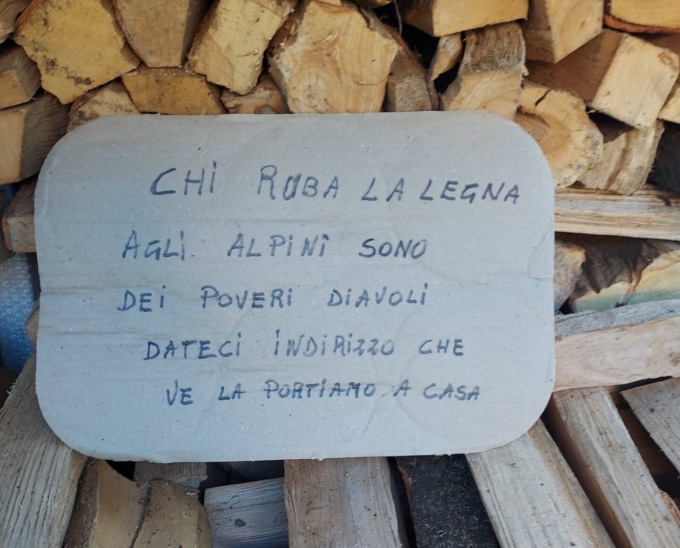 CHI RUBA LA LEGNA
AGLI ALPINI SONO
DEI POVERI DIAVOLI
DATECI INDIRIZZO CHE
VE LA PORTIAMO A CASA